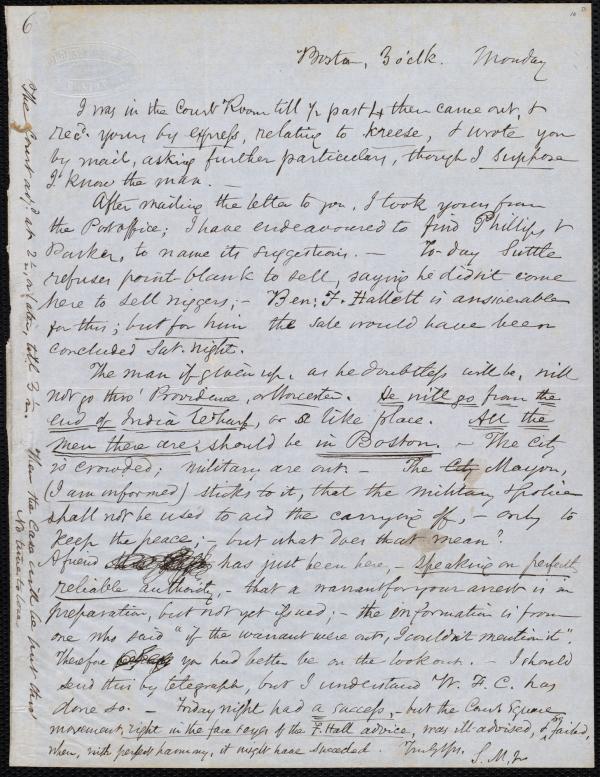 6
Boston, 3 o'clk. Monday
I was in the Court Room till ½ past 4 then came out, &
recd. yours by express, relating to Kreese, & wrote you
by mail, asking further particulars, though I suppose
I know the man. —
After mailing the letter to you, I took yours from
the Postoffice; I have endeavoured to find Phillips &
Parker, to name its suggestions. — To-day Suttle
refuses point-blank to sell, saying he didn't come
here to sell niggers; — Benj. F. Hallett is answerable
for this; but for him the sale would have been
concluded Sat. night.
The man if given up, as he doubtless will be, will
not go thro' Providence, or Worcester. He will go from the
end of India Wharf, or a like place. All the
men there are, should be in Boston. — The City
is crowded; military are out. — The City Mayor,
(I am informed) sticks to it, that the military & police
shall not be used to aid the carrying off, — only to
keep the peace; — but what does that mean?
A friend has just been here, — speaking on perfectly
reliable authority, — that a warrant for your arrest is in
preparation, but not yet issued; — the information is from
one who said "if the warrant were out, I couldn't mention it".
Therefore you had better be on the lookout. — I should
send this by telegraph, but I understand W. F. C. has
done so. — Friday night had a success, — but the Court Square
movement, right in the face & eyes of the F. Hall advice, was ill-advised, & failed,
when, with perfect harmony, it might have succeeded. Truly Yrs.
S. M. Jr
The Court adjd. at 2½, or later, till 3½. Then the Case will be put thro'
No time to lose